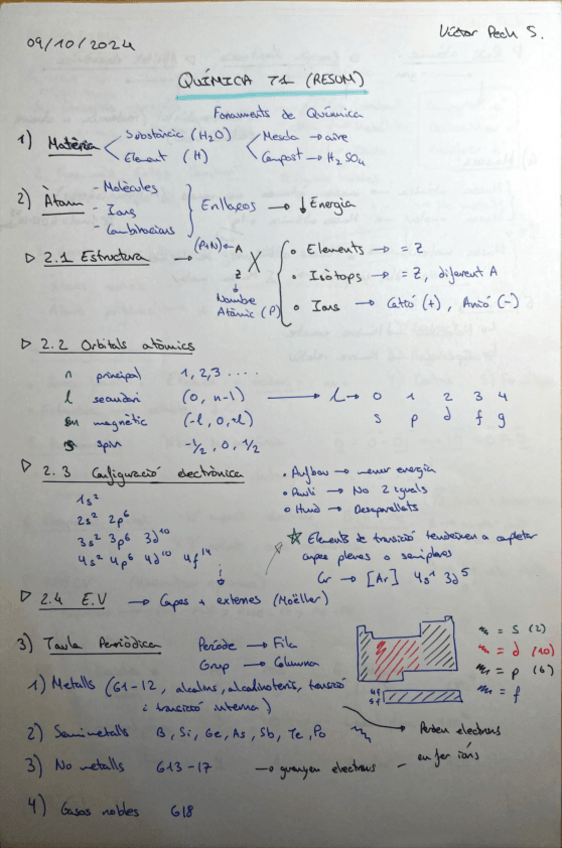 09/10/2024
Víctor Pech S.
QUÍMICA T1 (RESUM)
Fonaments de Química
1) Matèria
Substància (H₂O)
Element (H)
Mescla → aire
Compost → H₂SO₄
2) Àtom
- Molècules
- Ions
- Combinacions
Enllaços → ↓ Energia
▷ 2.1 Estructura →
(P+N) ← A
Z
X
Nombre
Atòmic (P)
• Elements → = Z
• Isòtops → = Z, diferent A
• Ions → Catió (+), Anió (-)
▷ 2.2 Orbitals atòmics
n principal 1, 2, 3 ....
l secundari (0, n-1) → l → 0 1 2 3 4
s p d f g
m magnètic (-l, 0, +l)
s spin -1/2, 0, 1/2
▷ 2.3 Configuració electrònica
1s²
2s² 2p⁶
3s² 3p⁶ 3d¹⁰
4s² 4p⁶ 4d¹⁰ 4f¹⁴
• Aufbau → menor energia
• Pauli → No 2 iguals
• Hund → Desaparellats
☆ Elements de transició tendeixen a completar
capes plenes o semiplenes
Cr → [Ar] 4s¹ 3d⁵
▷ 2.4 E.V → Capes + externes (Moëller)
3) Taula Periòdica
Període → Fila
Grup → Columna
= s (2)
= d (10)
= p (6)
= f
4f
5f
1) Metalls (G1-12, alcalins, alcalinoterris, transició
i transició interna)
Perden electrons
en fer ions
2) Semimetalls B, Si, Ge, As, Sb, Te, Po
3) No metalls G13-17 → guanyen electrons
4) Gasos nobles G18